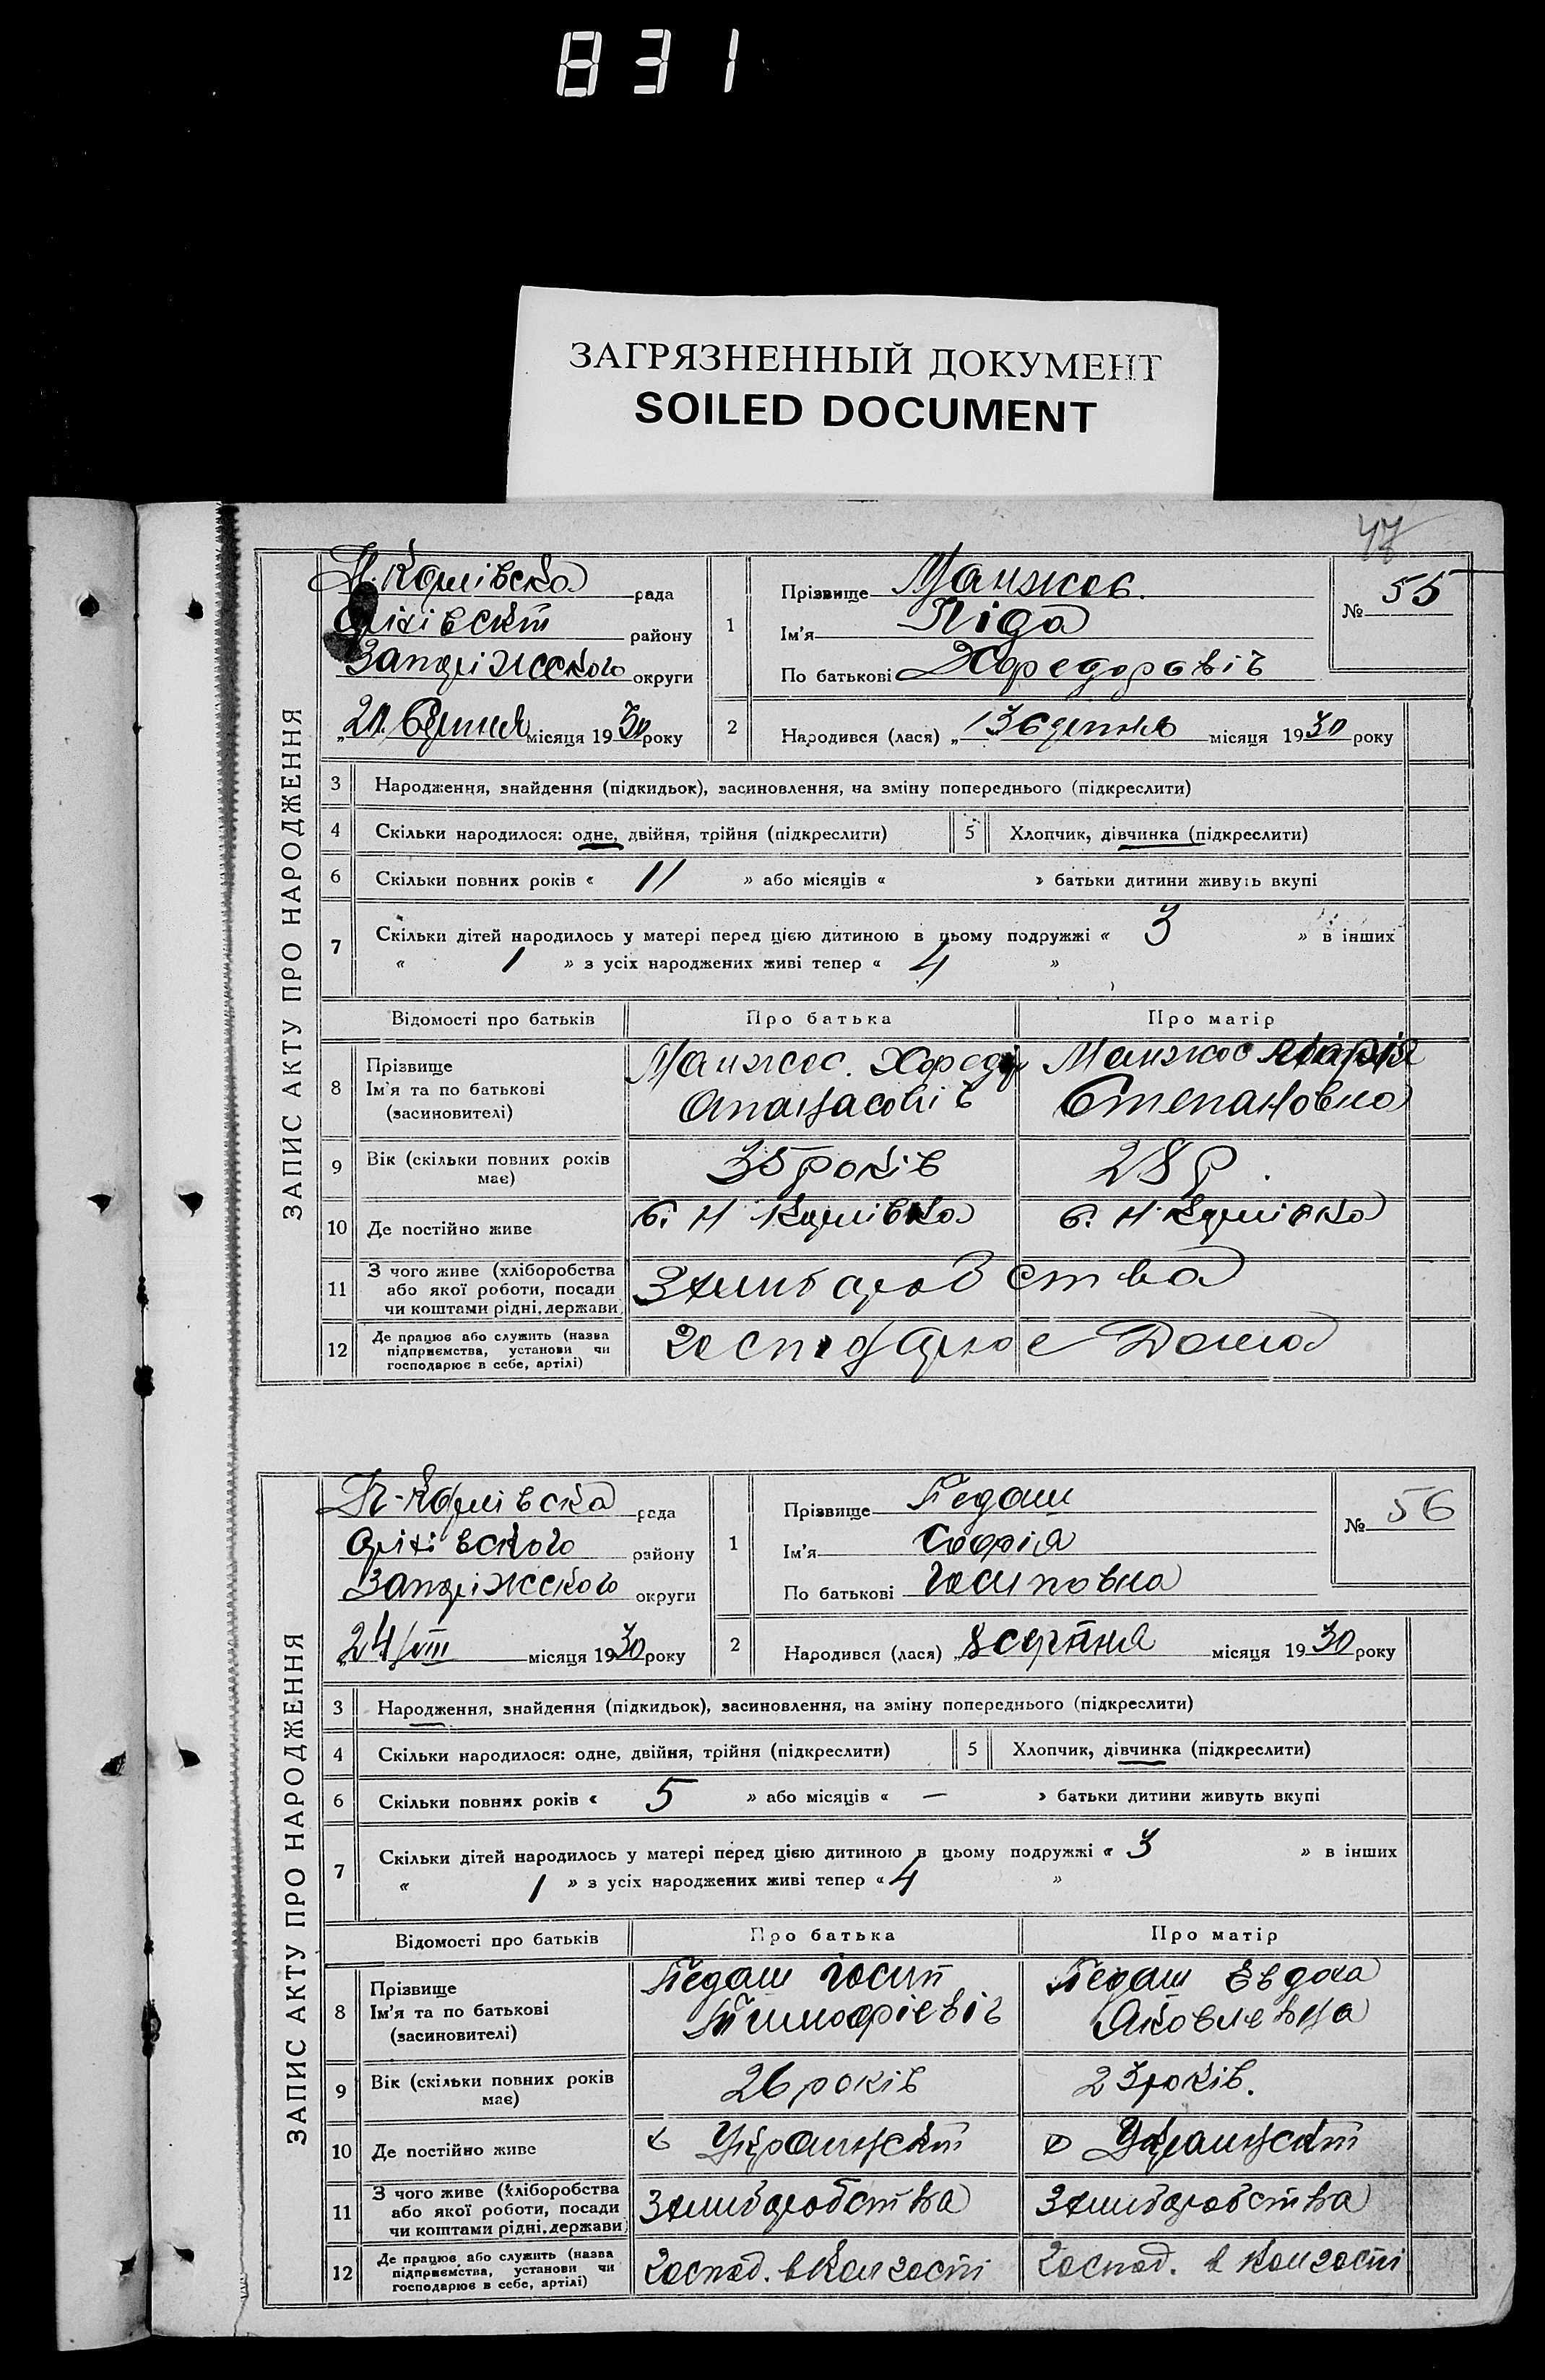 831
ЗАГРЯЗНЕННЫЙ ДОКУМЕНТ
SOILED DOCUMENT
47
ЗАПИС АКТУ ПРО НАРОДЖЕННЯ
Н. Карлівска рада
району
Запоріжского округи
„21. Серпня місяця 1930 року
1
Прізвище Манжос.
Ім'я Ліда
По батькові Хфедоровіч
№ 55
2
Народився (лася) „13 Серпня місяця 1930 року
3 Народження, знайдення (підкидьок), засиновлення, на зміну попереднього (підкреслити)
4 Скільки народилося: одне, двійня, трійня (підкреслити) 5 Хлопчик, дівчинка (підкреслити)
6 Скільки повних років « 11 » або місяців « » батьки дитини живуть вкупі
7 Скільки дітей народилось у матері перед цією дитиною в цьому подружжі « 3 » в інших
« 1 » з усіх народжених живі тепер « 4 »
Відомості про батьків Про батька Про матір
8 Прізвище Ім'я та по батькові (засиновителі)
Манжос. Хфедір
Манжос Марія
Степановна
9 Вік (скільки повних років має) 35 років 28 р.
10 Де постійно живе с. Н Карлівка с. Н. Карлівка
11 З чого живе (хліборобства або якої роботи, посади чи коштами рідні, держави) З хлиборобства
12 Де працює або служить (назва підприємства, установи чи господарює в себе, артілі) Господарює Дома
ЗАПИС АКТУ ПРО НАРОДЖЕННЯ
Н-Карлівска рада
Оріхівского району
Запоріжского округи
„24/VIII місяця 1930 року
1
Прізвище Педаш
Ім'я Софія
По батькові Йосиповна
№ 56
2
Народився (лася) „8 серпня місяця 1930 року
3 Народження, знайдення (підкидьок), засиновлення, на зміну попереднього (підкреслити)
4 Скільки народилося: одне, двійня, трійня (підкреслити) 5 Хлопчик, дівчинка (підкреслити)
6 Скільки повних років « 5 » або місяців « — » батьки дитини живуть вкупі
7 Скільки дітей народилось у матері перед цією дитиною в цьому подружжі « 3 » в інших
« 1 » з усіх народжених живі тепер « 4 »
Відомості про батьків Про батька Про матір
8 Прізвище Ім'я та по батькові (засиновителі)
Педаш Йосип
Тимофієвіч
Педаш Евдоха
Яковлевна
9 Вік (скільки повних років має) 26 років 23 років.
10 Де постійно живе
11 З чого живе (хліборобства або якої роботи, посади чи коштами рідні, держави) З хлиборобства З хлиборобства
12 Де працює або служить (назва підприємства, установи чи господарює в себе, артілі) Господ. в Колгоспі Господ. в Колгоспі